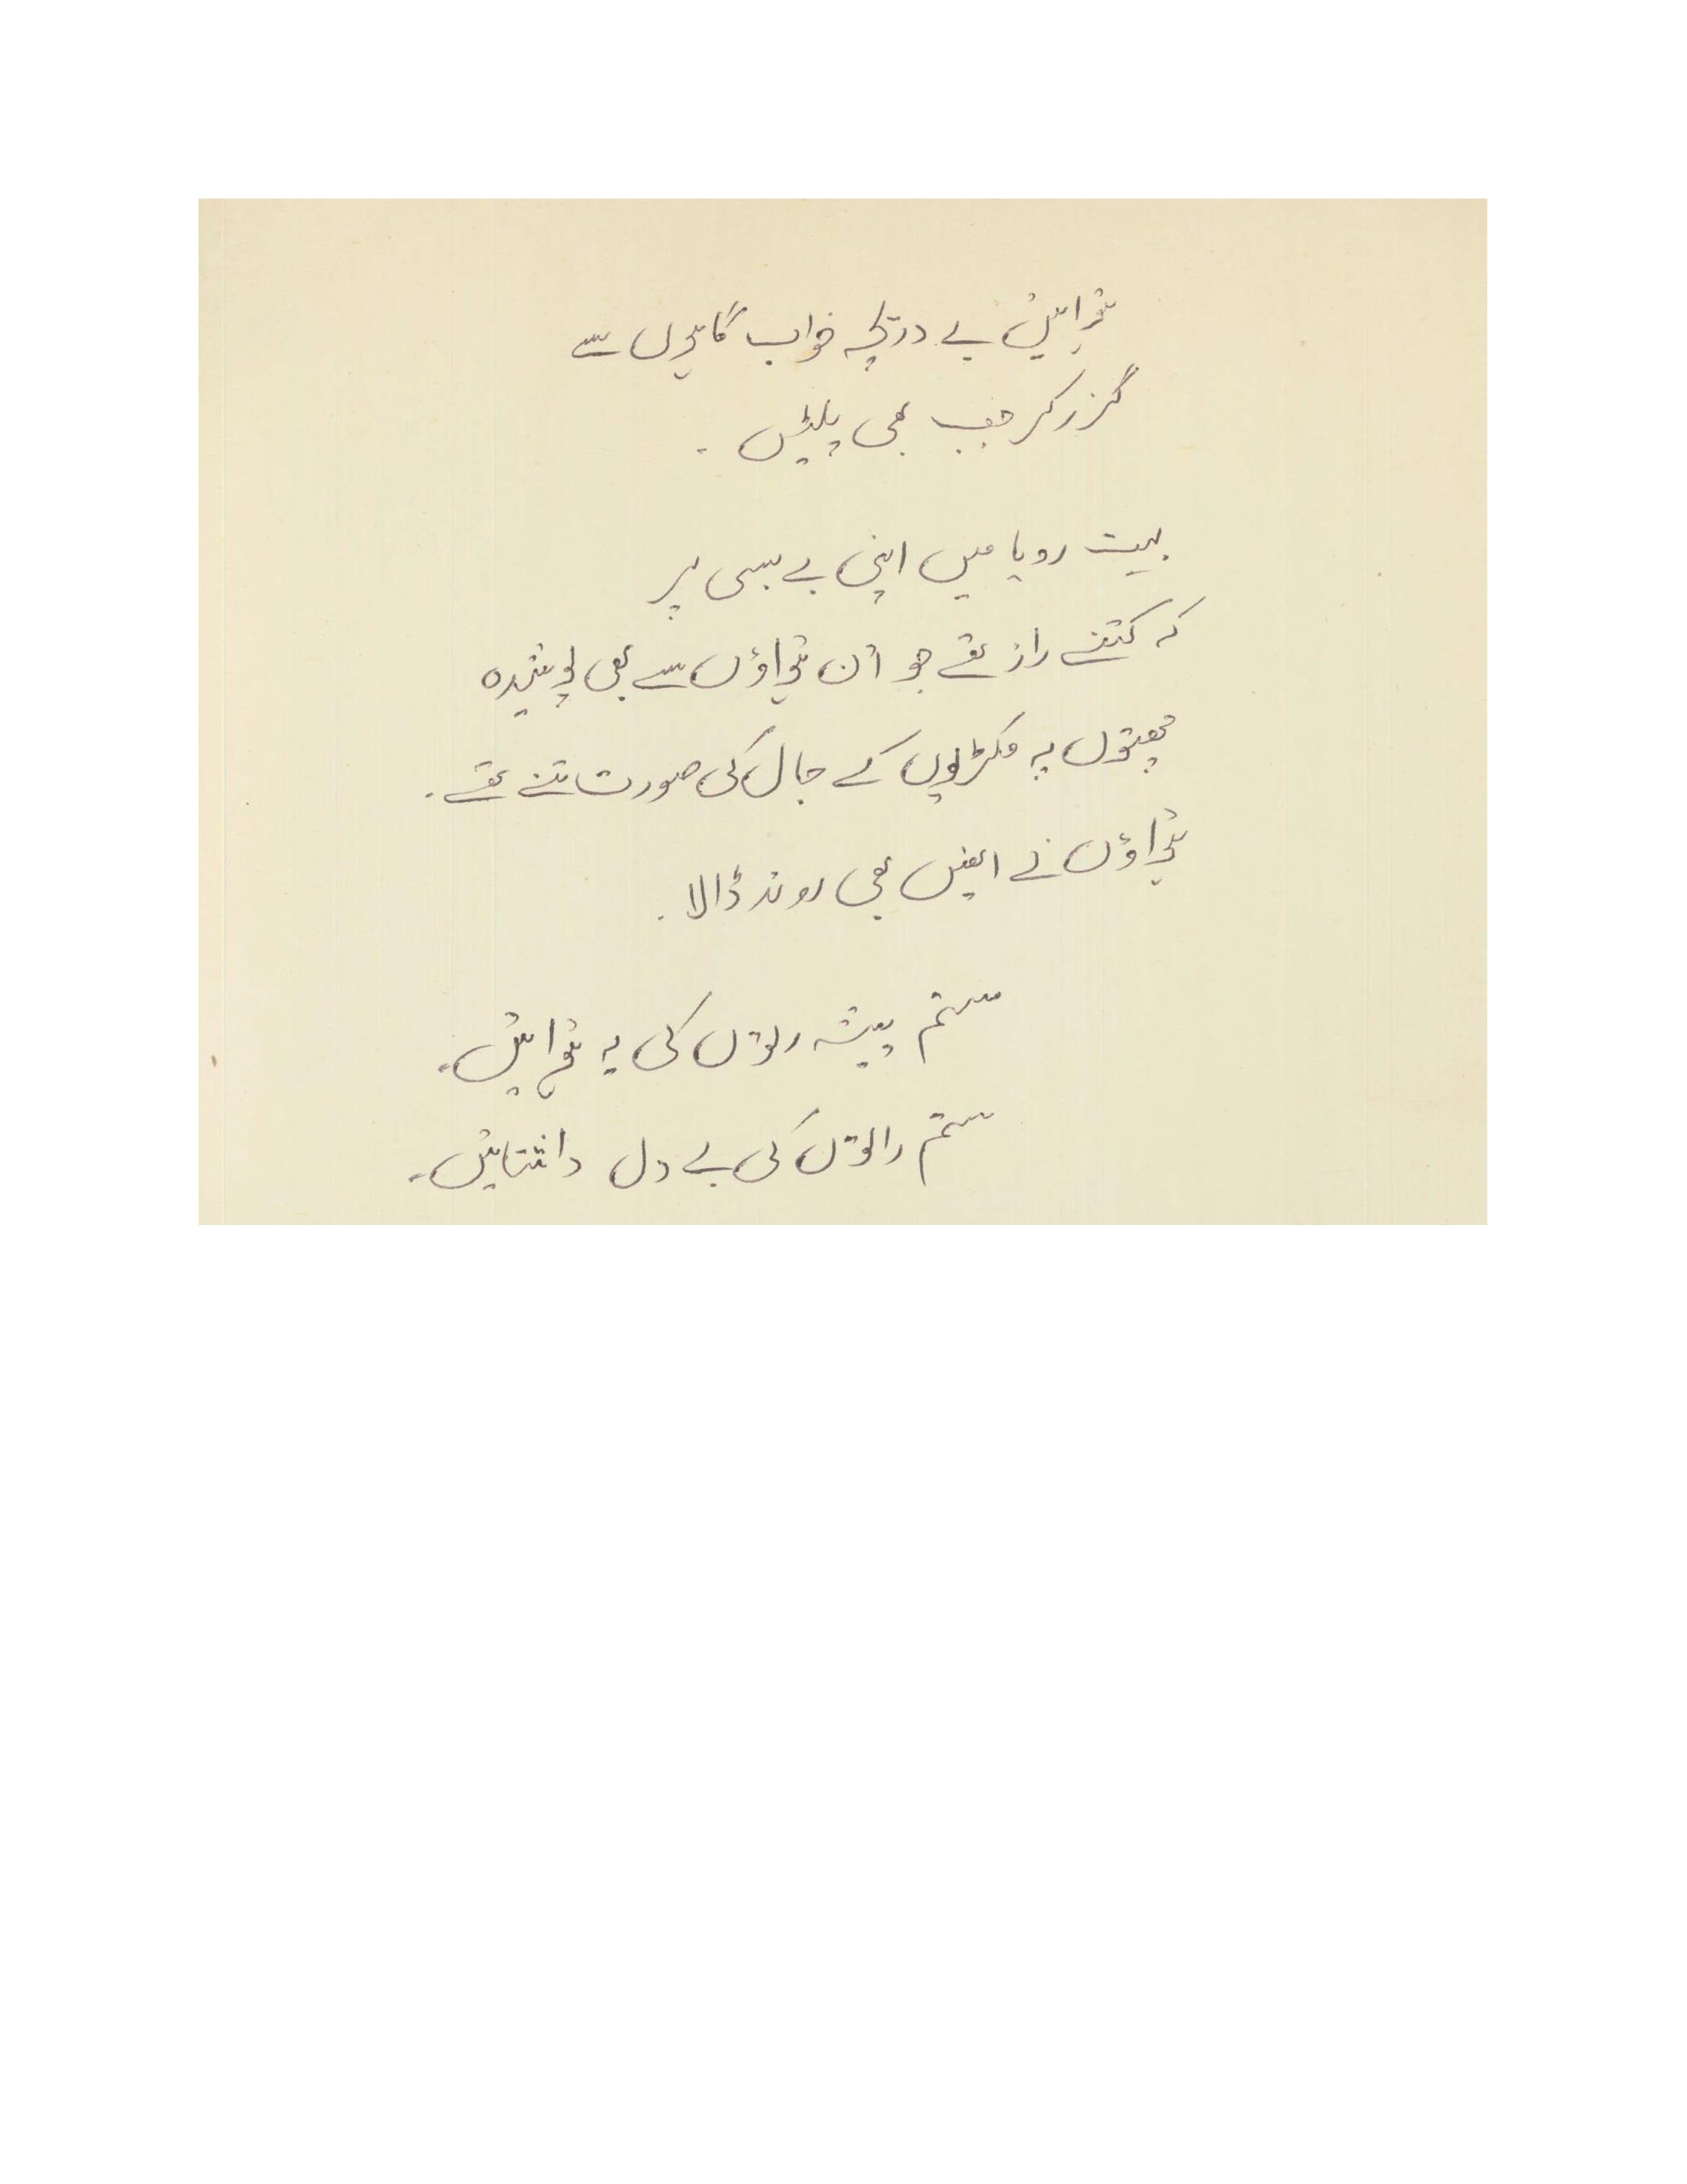 ہوائیں بے دریچہ خواب گاہوں سے
گزر کر جب بھی پلٹیں ۔
بہت رویا میں اپنی بے بسی پر
کہ کتنے راز تھے جو اُن ہواؤں سے بھی پوشیدہ
چھتوں پہ مکڑیوں کے جال کی صورت تنے تھے ۔
ہواؤں نے انھیں بھی روند ڈالا ۔
ستم پیشہ رتوں کی یہ ہوائیں ۔
ستم راتوں کی بے دل داشتائیں ۔